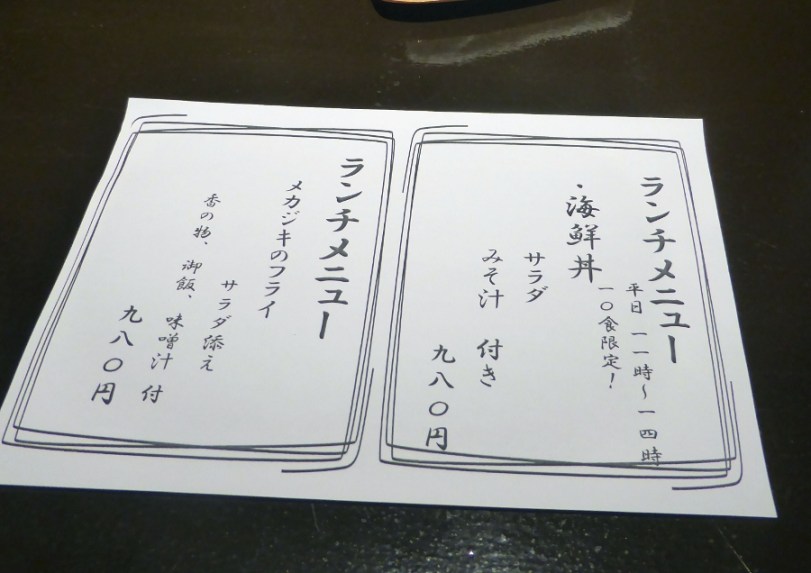 ランチメニュー
平日 一一時～一四時
一〇食限定！
・海鮮丼
サラダ
みそ汁 付き
九八〇円
ランチメニュー
メカジキのフライ
サラダ添え
香の物、御飯、味噌汁 付
九八〇円